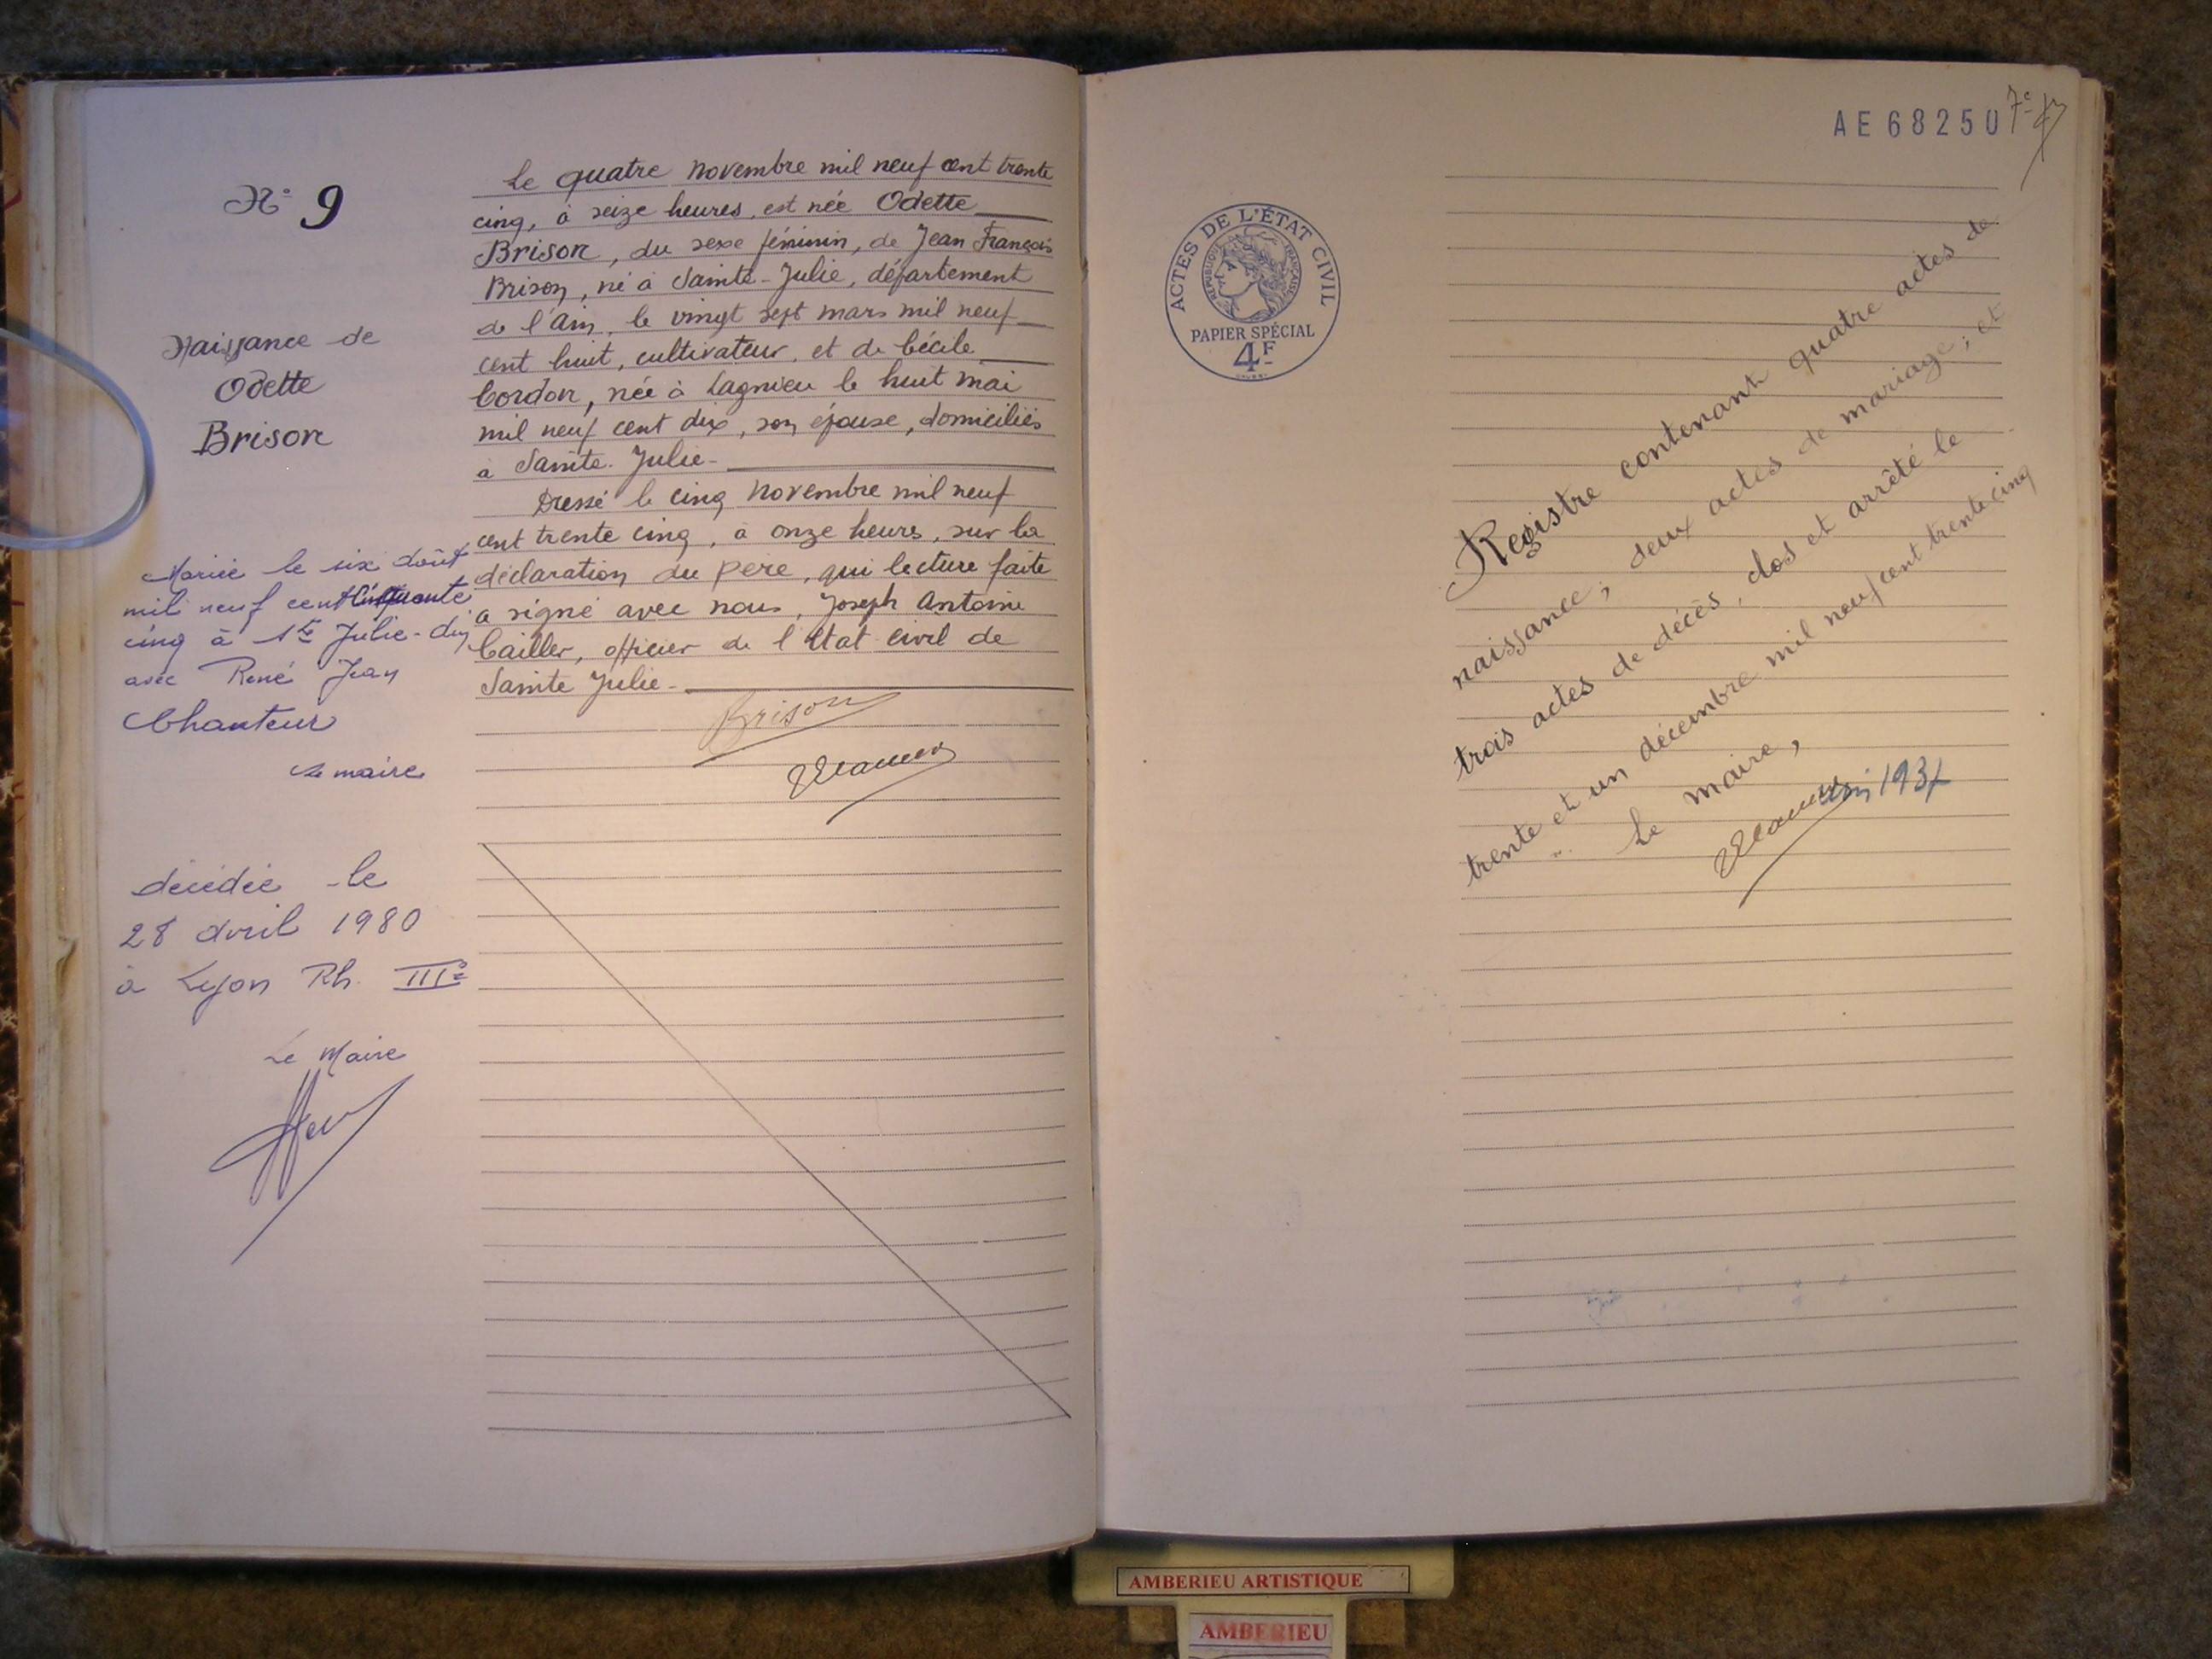 N° 9
Naissance de
Odette
Brison
Mariée le six août
mil neuf cent cinquante
cinq à Ste Julie-
avec René Jean
Chanteur
Le maire
décédée le
28 avril 1980
à Lyon Rh. IIIe
Le Maire
Le quatre novembre mil neuf cent trente
cinq, à seize heures, est née Odette
Brison, du sexe féminin, de Jean François
Brison, né à Sainte-Julie, département
de l'Ain, le vingt sept mars mil neuf
cent huit, cultivateur, et de Cécile
Cordon, née à Lagnieu le huit mai
mil neuf cent dix, son épouse, domiciliés
à Sainte-Julie-
Dressé le cinq novembre mil neuf
cent trente cinq, à onze heures, sur la
déclaration du père, qui lecture faite
a signé avec nous, Joseph Antoine
Cailler, officier de l'Etat civil de
Sainte Julie-
Brison
AE 68250
7e
ACTES DE L'ÉTAT CIVIL
RÉPUBLIQUE FRANÇAISE
PAPIER SPÉCIAL
4F
Registre contenant quatre actes de
naissance; deux actes de mariage; et
trois actes de décès, clos et arrêté le
trente et un décembre mil neuf cent trente cinq
Le maire,
AMBERIEU ARTISTIQUE
AMBERIEU